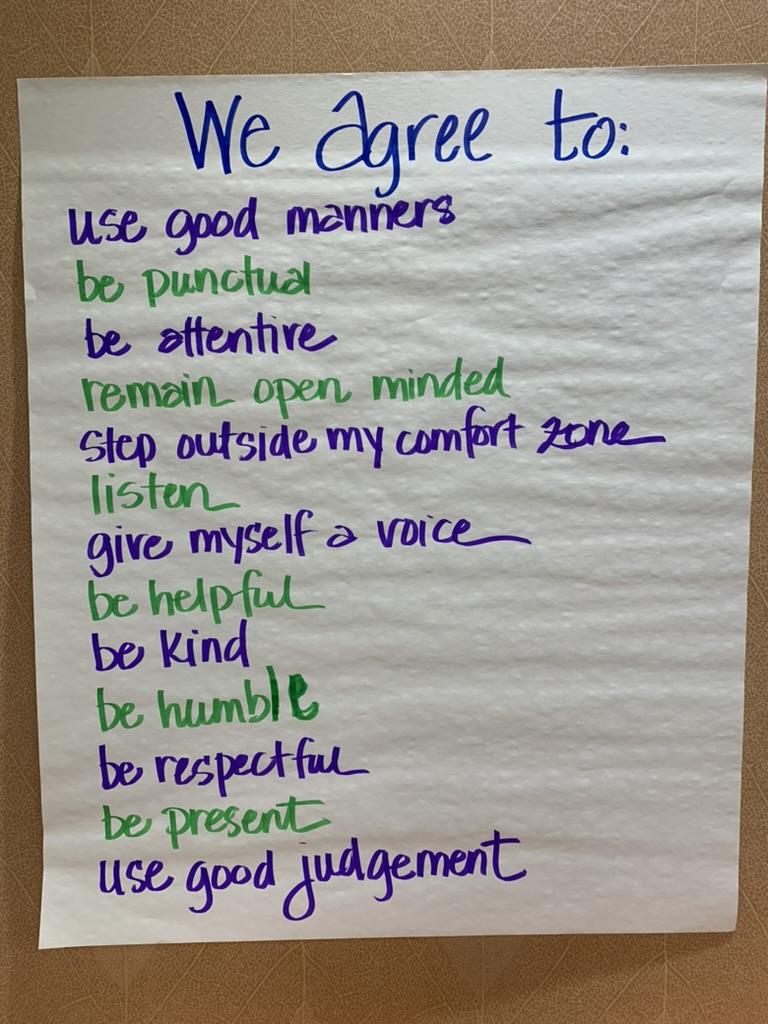 We agree to:
use good manners
be punctual
be attentive
remain open minded
step outside my comfort zone
listen
give myself a voice
be helpful
be kind
be humble
be respectful
be present
use good judgement